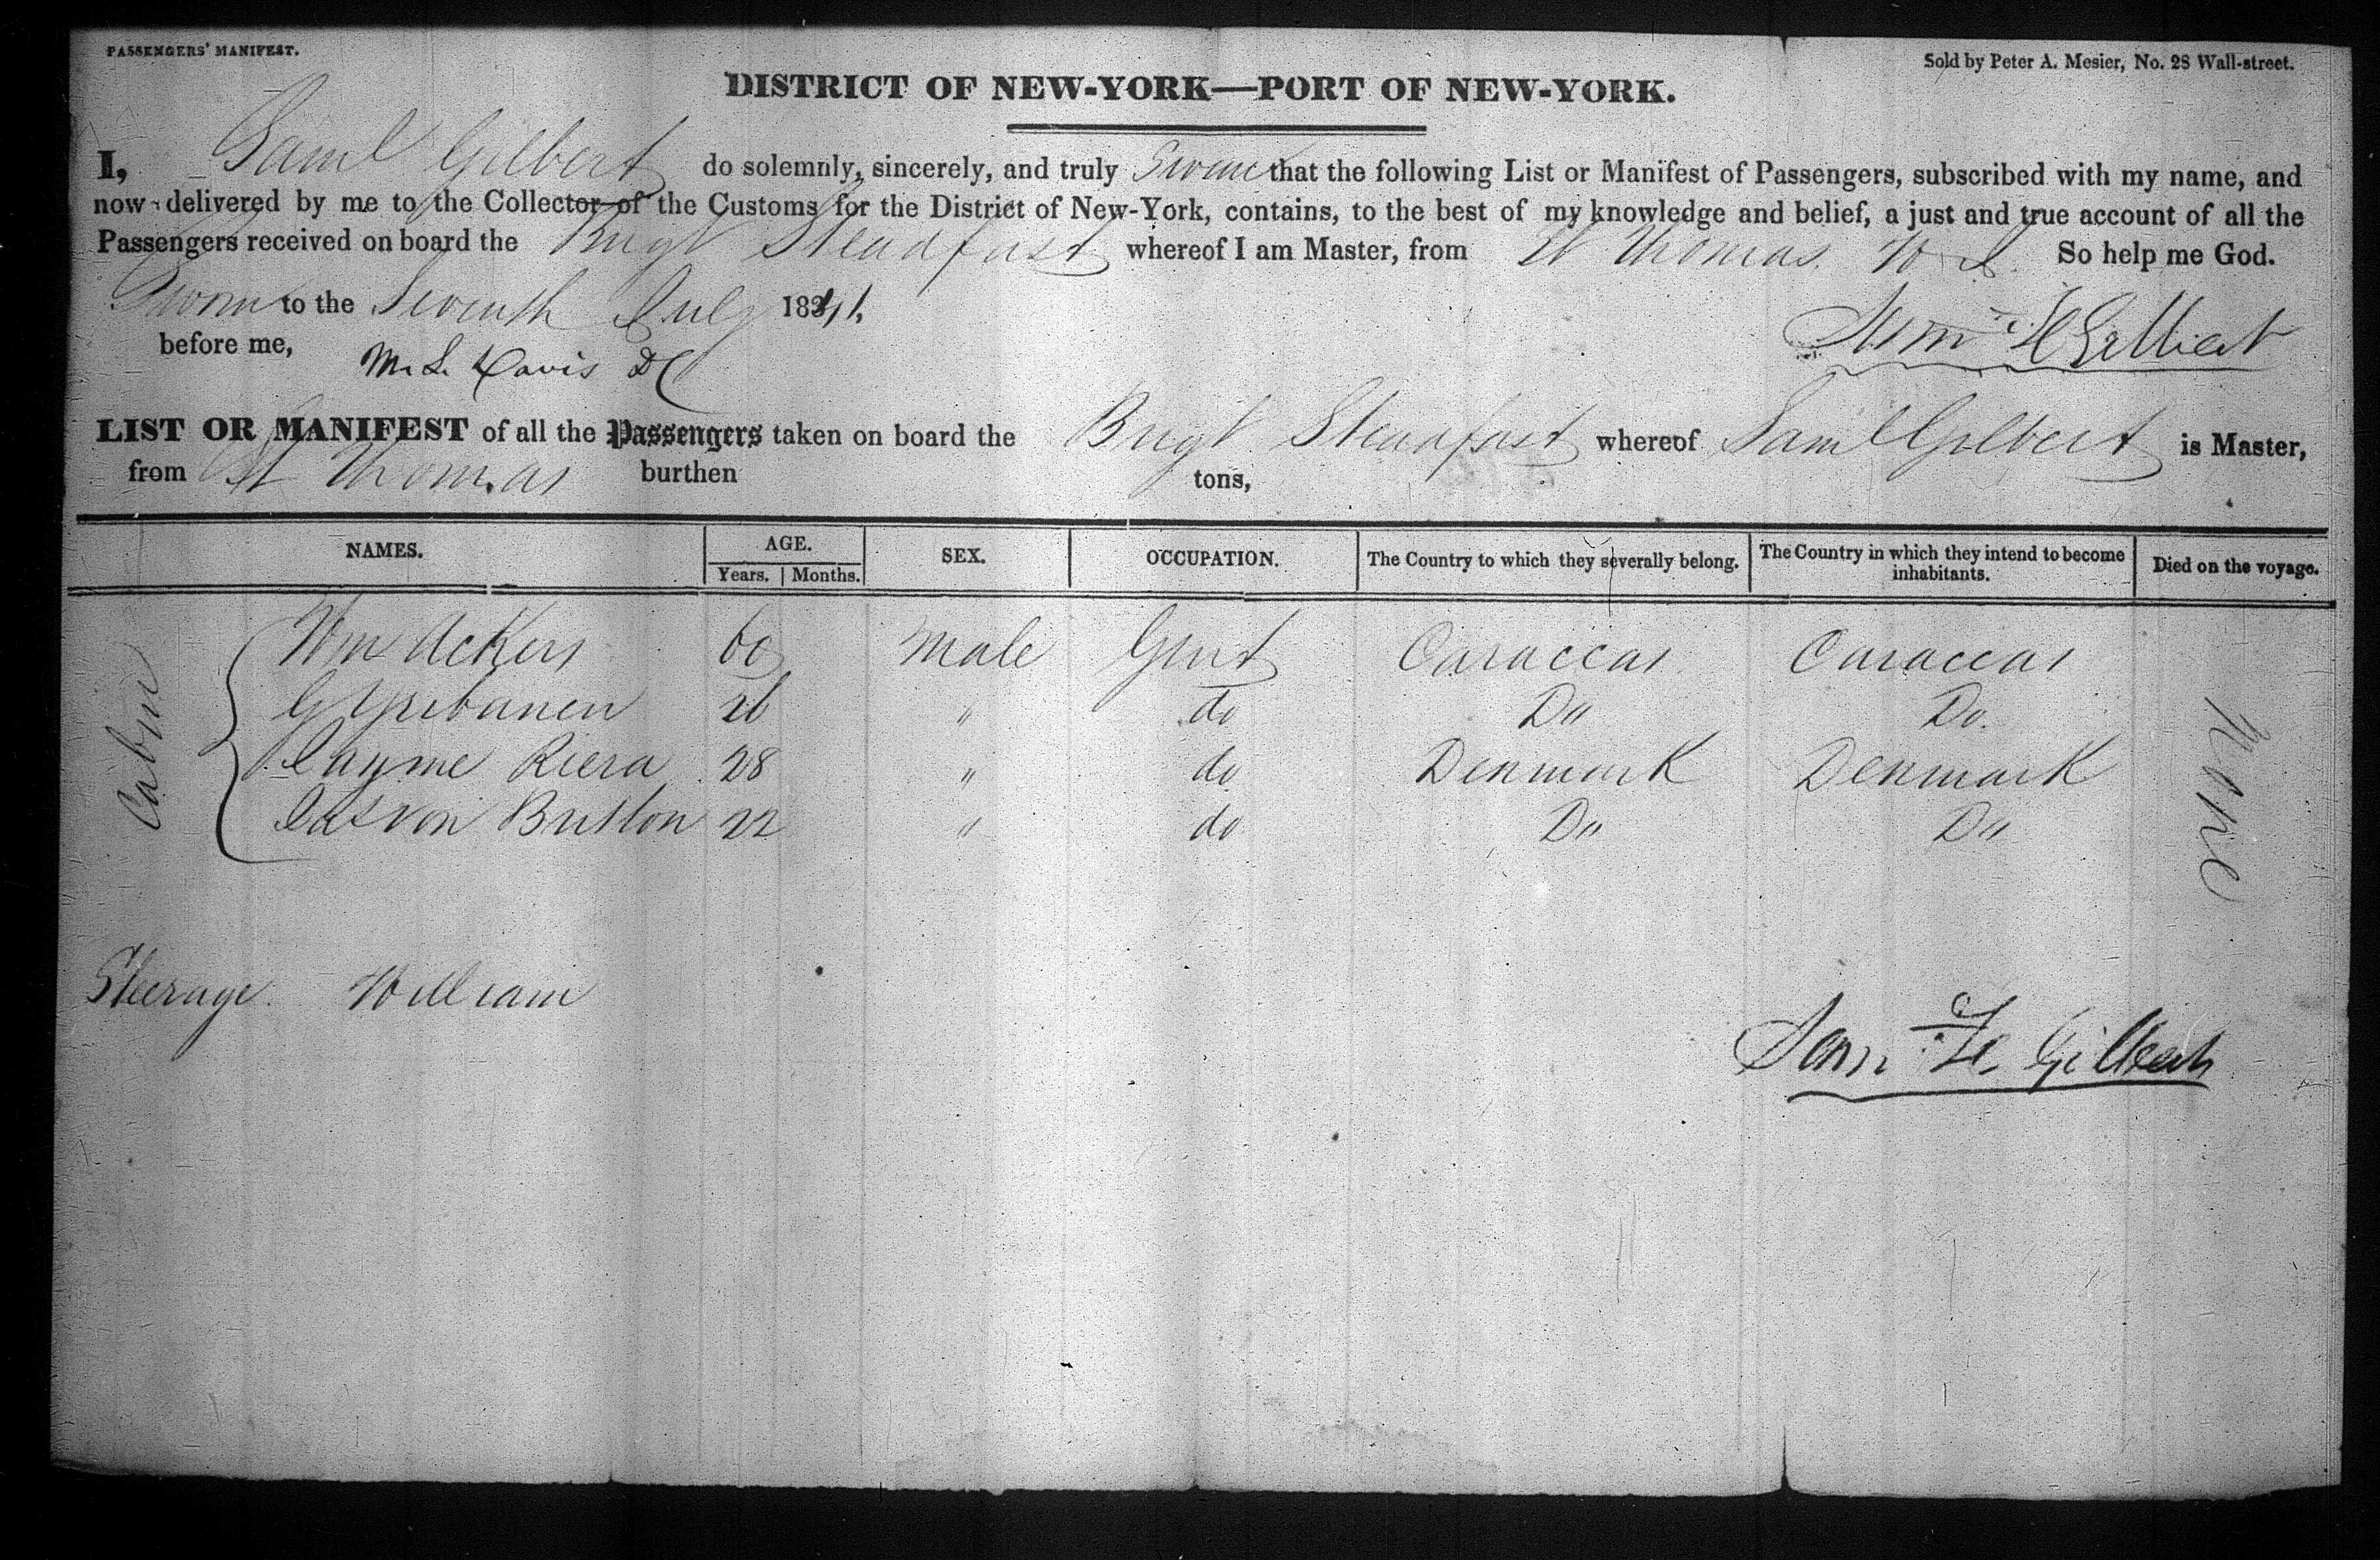 PASSENGERS' MANIFEST.
Sold by Peter A. Mesier, No. 28 Wall-street.
DISTRICT OF NEW-YORK—PORT OF NEW-YORK.
I, Saml Gilbert do solemnly, sincerely, and truly Swear that the following List or Manifest of Passengers, subscribed with my name, and
now delivered by me to the Collector of the Customs for the District of New-York, contains, to the best of my knowledge and belief, a just and true account of all the
Passengers received on board the Brigt Steadfast whereof I am Master, from St Thomas. W. I. So help me God.
Sworn to the Seventh July 1841.
before me, M. L. Davis DC
Saml F Gilbert
LIST OR MANIFEST of all the Passengers taken on board the Brigt Steadfast whereof Saml Gilbert is Master,
from St Thomas burthen tons,
NAMES. AGE. SEX. OCCUPATION. The Country to which they severally belong. The Country in which they intend to become inhabitants. Died on the voyage.
Years. Months.
Cabin
Wm Ackers 60 Male Gent Caraccas Caraccas
G 26 " do Do Do.
Jayme Riera 28 " do Denmark Denmark
22 " do Do Do
None
Steerage. William
Saml F. Gilbert